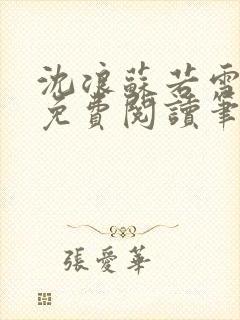 沈浪蘇若雪
免費閱讀筆
張愛華